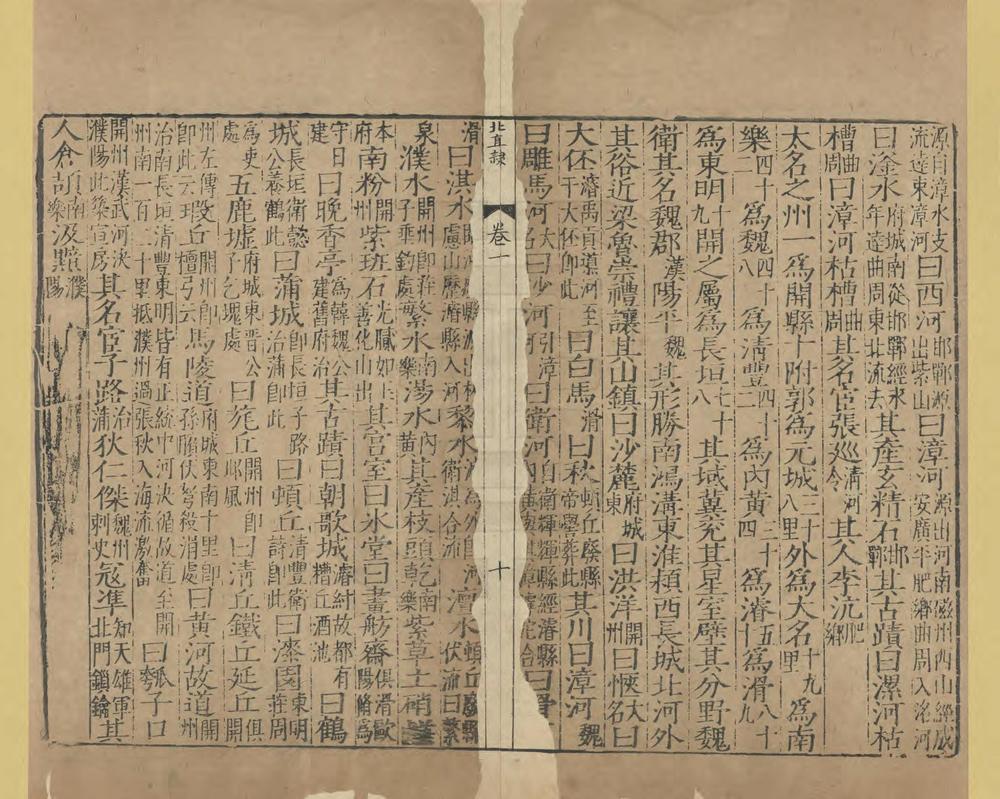 源自漳水支流達東漳河曰西河邯鄲源出紫山曰漳河源出河南磁州西山經成安廣平肥鄉曲周入洺河
曰淦水府城南從邯鄲經永年達曲周東北流去其產玄精石邯鄲其古蹟曰漯河枯
槽曲周曰漳河枯槽曲周其名宦張巡清河令其人李沆肥鄉
太名之州一為開縣十附郭為元城三十八里外為大名十九里為南
樂四十二為魏四十八為清豐四十二為內黃三十四為濬五十為滑八十九
為東明十九開之屬為長垣七十八其域冀兖其星室壁其分野魏
衛其名魏郡漢陽平魏其形勝南鴻溝東淮穎西長城北河外
其俗近梁魯崇禮讓其山鎮曰沙麓府城東曰洪洋開州曰愜大名曰
大伾濬禹貢導河至于大伾即此曰白馬滑曰秋頓丘廢縣帝嚳葬此其川曰漳河魏
曰雕馬河大名曰沙河引漳曰衛河自衛輝輝縣經濬縣曰滑
北直隸 卷一 十
滑曰淇水慮山歷濬縣入河黎水衛淇合流澶水頓丘廢縣伏流曰繁
泉濮水開州即莊子垂釣處繁水南樂湯水內黃其產枝頭乾南樂紫草土硝
本府南粉開州紫班石光膩如玉善化山出其宮室曰氷堂曰畫舫齋俱滑歐陽脩為
守日建曰晚香亭為韓魏公建舊府治其古蹟曰朝歌城濬紂故都有糟丘酒池曰鶴
城長垣衛懿公養鶴此曰蒲城即長垣子路治蒲即此曰頓丘清豐衛詩即此曰漆園東明莊周
為吏處五鹿墟府城東晉公子乞塊處曰旄丘開州即邶風曰清丘鐵丘延丘俱開
州左傳即此云瑕丘開州即檀弓云馬陵道府城東南十里即孫臏伏弩殺消處曰黃河故道開州
治南長垣清豐東明皆有正統中河決循故道至開州南一百二十里抵濮州過張秋入海流激奮曰瓠子口
開州漢武河決濮陽此築宣房其名宦子路治蒲狄仁傑魏州刺史寇準知天雄軍北門鎖鑰其
人倉頡南樂汲黯濮陽